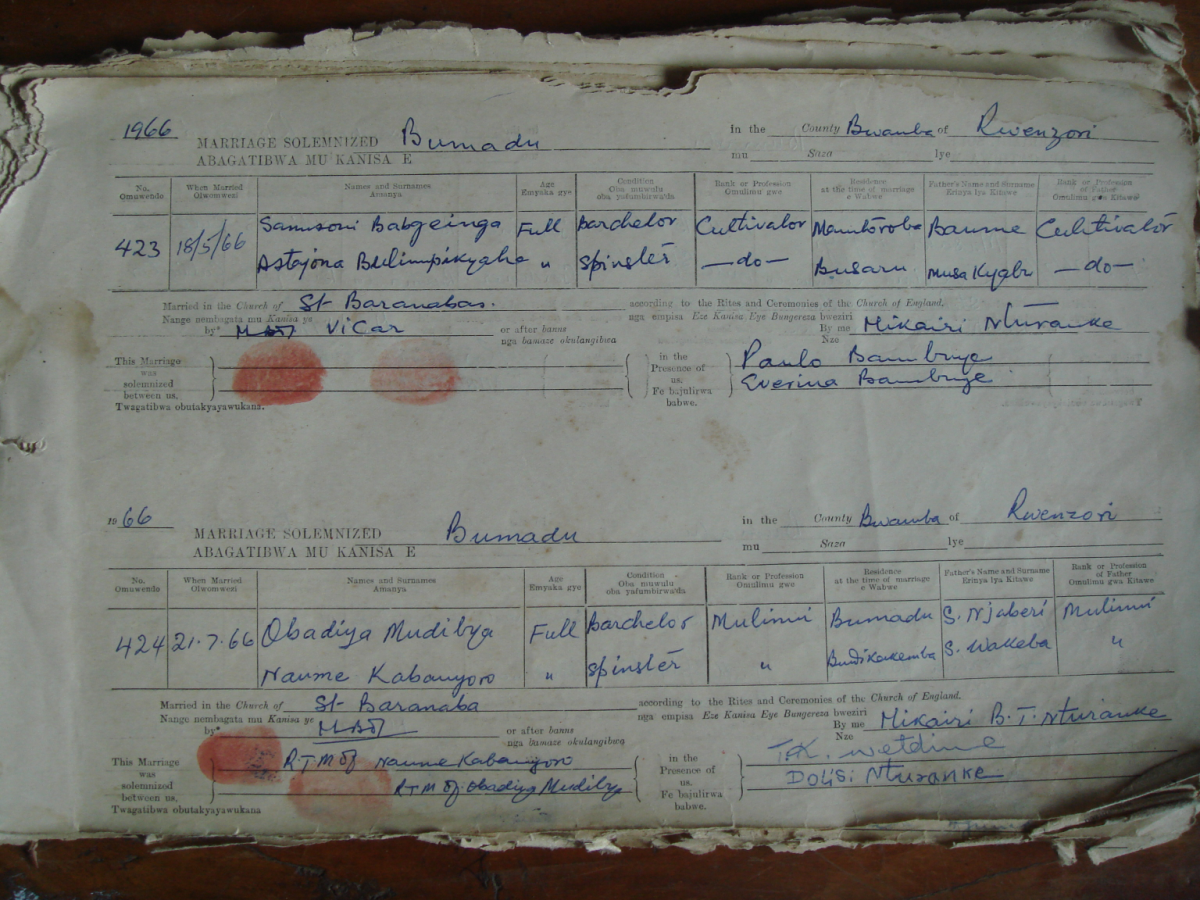 1966 MARRIAGE SOLEMNIZED Bumadu in the County Bwamba of Rwenzori
ABAGATIBWA MU KANISA E mu Saza lye
No. When Married Names and Surnames Age Condition Rank or Profession Residence Father's Name and Surname Rank or Profession
Omuwendo Olwomwezi Amanya Emyaka gye Oba muwulu Omulimu gwe at the time of marriage Erinya lya Kitawe of Father
oba yafumbirwada e Wabwe Omulimu gwa Kitawe
423 18/5/66 Samusoni Babgeinga Full Barchelor Cultivator Baume Cultivator
Astajona Bulimpikyaha " Spinster —do— Busaru Musa Kyabu —do—
Married in the Church of St. Baranabas. according to the Rites and Ceremonies of the Church of England.
Nange nembagata mu Kanisa ye nga empisa Eze Kanisa Eye Bungereza bweziri
by* Vicar or after banns By me Mikairi Nturanke
nga bamaze okulangibwa Nze
This Marriage in the Paulo Bambuye
was Presence of
solemnized us. Everina Bambuye
between us. Fe bajulirwa
Twagatibwa obutakyayawukana. babwe.
1966 MARRIAGE SOLEMNIZED Bumadu in the County Bwamba of Rwenzori
ABAGATIBWA MU KANISA E mu Saza lye
No. When Married Names and Surnames Age Condition Rank or Profession Residence Father's Name and Surname Rank or Profession
Omuwendo Olwomwezi Amanya Emyaka gye Oba muwulu Omulimu gwe at the time of marriage Erinya lya Kitawe of Father
oba yafumbirwada e Wabwe Omulimu gwa Kitawe
424 21.7.66 Obadiya Mudibya Full Barchelor Mulimi Bumadu S. Njaberi Mulimi
Naume Kabanyoro " Spinster " Bundikakemba S. Wakeba "
Married in the Church of St. Baranaba according to the Rites and Ceremonies of the Church of England.
Nange nembagata mu Kanisa ye nga empisa Eze Kanisa Eye Bungereza bweziri
by* or after banns By me Mikairi B.T. Nturanke
nga bamaze okulangibwa Nze
This Marriage R.T.M of Naume Kabanyoro in the
was Presence of
solemnized R.T.M of Obadiya Mudibya us. Dolisi Nturanke
between us. Fe bajulirwa
Twagatibwa obutakyayawukana babwe.